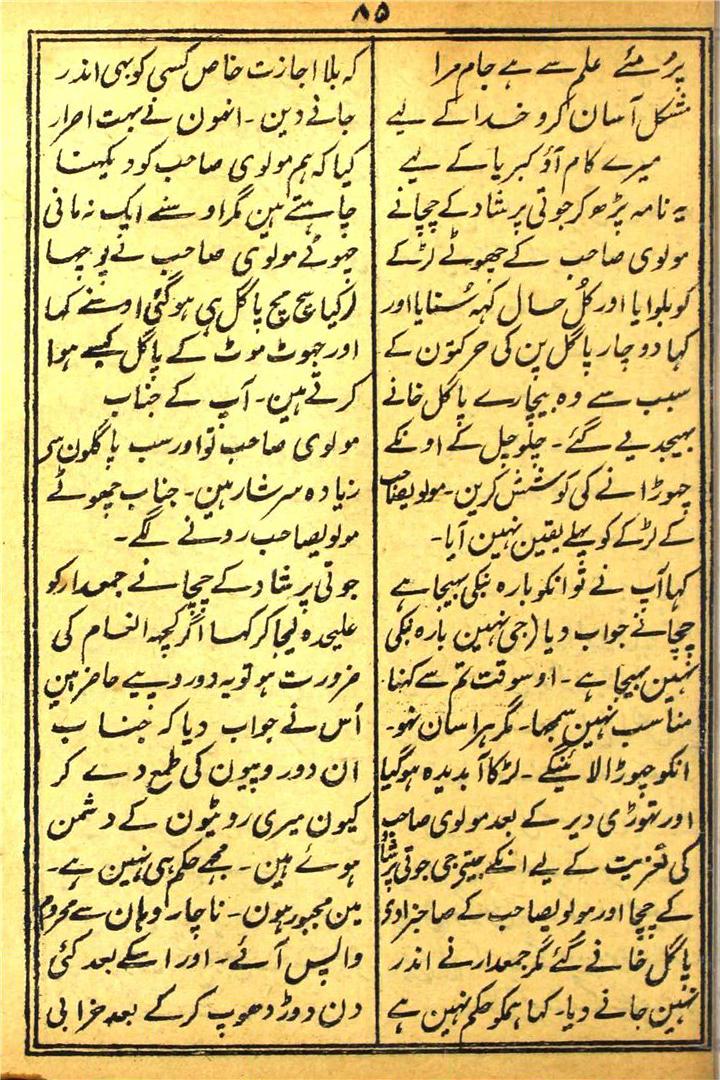 ۸۵
پُر مئے علم سے ہے جام مرا
مشکل آسان کرو خدا کے لیے
میرے کام آؤ کبریا کے لیے
یہ نامہ پڑھ کر جوتی پرشاد کے چچا نے
مولوی صاحب کے چھوٹے لڑکے
کو بلوایا اور کُل حال کہہ سُنایا اور
کہا دو چار پاگل پن کی حرکتون کے
سبب سے وہ بیچارے پاگل خانے
بھیجدیے گئے۔ چلو چل کے اونکے
چھوڑانے کی کوشش کرین۔ مولویصاحب
کے لڑکے کو پہلے یقین نہین آیا۔
کہا آپ نے تو انکو بارہ بنکی بھیجا ہے
چچا نے جواب دیا (جی نہین بارہ بنکی
نہین بھیجا ہے۔ اوسوقت تم سے کہنا
مناسب نہین سمجھا۔ مگر ہراسان نہو۔
انکو چھوڑا لائینگے۔ لڑکا آبدیدہ ہوگیا
اور تھوڑی دیر کے بعد مولوی صاحب
کی تعزیت کے لیے انکے جیتے جی جوتی پرشاد
کے چچا اور مولویصاحب کے صاحبزادی
پاگل خانے گئے مگر جمعدار نے اندر
نہین جانے دیا۔ کہا ہمکو حکم نہین ہے
کہ بلا اجازت خاص کسی کو بھی اندر
جانے دین۔ انھون نے بہت اصرار
کیا کہ ہم مولوی صاحب کو دیکھنا
چاہتے ہین مگر اوسنے ایک نہ مانی
چھوٹے مولوی صاحب نے پوچھا
ارکیا سچ مچ پاگل ہی ہوگئی اوسنے کہا
اور جھوٹ موٹ کے پاگل کیسے ہوا
کرتے ہین۔ آپ کے جناب
مولوی صاحب تو اور سب پاگلون سے
زیادہ سرشار ہین۔ جناب چھوٹے
مولویصاحب رونے لگے۔
جوتی پرشاد کے چچا نے جمعدار کو
علیحدہ لیجا کر کہا اگر کچھ انعام کی
ضرورت ہو تو یہ دو روپیے حاضر ہین
اُس نے جواب دیا کہ جناب
ان دو روپیون کی طمع دے کر
کیون میری روٹیون کے دشمن
ہوئے ہین۔ مجھے حکم ہی نہین ہے۔
مین مجبور ہون۔ ناچار وہان سے محروم
واپس آئے۔ اور اسکے بعد کئی
دن دوڑ دھوپ کرکے بعد خرابی